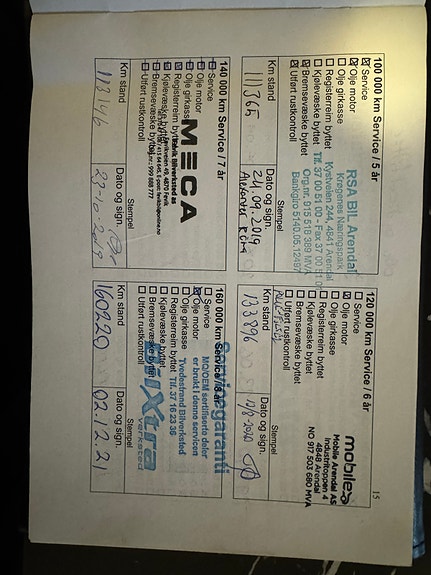 100 000 km Service / 5 år
Service
Olje motor
Olje girkasse
Registerreim byttet
Kjølevæske byttet
Bremsevæske byttet
Utført rustkontroll
RSA BIL Arendal
Krøgenes Næringspark
Kystveien 244, 4841 Arendal
Tlf. 37 00 51 00 - Fax 37 00 51 0
Org.nr. 915 518 399 MVA
Bankgiro 8140.05.12497
Stempel
Km stand
Dato og sign.
111365
24.09.2019
Alexander
120 000 km Service / 6 år
Service
Olje motor
Olje girkasse
Registerreim byttet
Kjølevæske byttet
Bremsevæske byttet
Utført rustkontroll
mobile
Mobile Arendal AS
Industritoppen 4
4848 Arendal
NO 917 503 680 MVA
Stempel
Km stand
Dato og sign.
133896
15
140 000 km Service / 7 år
Service
Olje motor
Olje girkasse
Registerreim byttet
Kjølevæske byttet
Bremsevæske byttet
Utført rustkontroll
MECA
Stempel
Km stand
Dato og sign.
113146
23-10-2019
160 000 km Service / 8 år
Service
Olje motor
Olje girkasse
Registerreim byttet
Kjølevæske byttet
Bremsevæske byttet
Utført rustkontroll
Servicegaranti
MQOEM sertifiserte deler
er brukt i denne servicen
Tvedestrand Bilverksted
Tlf. 37 16 23 36
BilXtra
verksted
Stempel
Km stand
Dato og sign.
160220
02.12.21